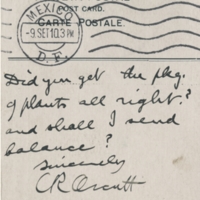 POST CARD.
CARTE POSTALE
MEXICO
-9.SET10.3PM
D.F.
Did you get the pkg.
of plants all right?
and shall I send
balance?
Sincerely
CR Orcutt